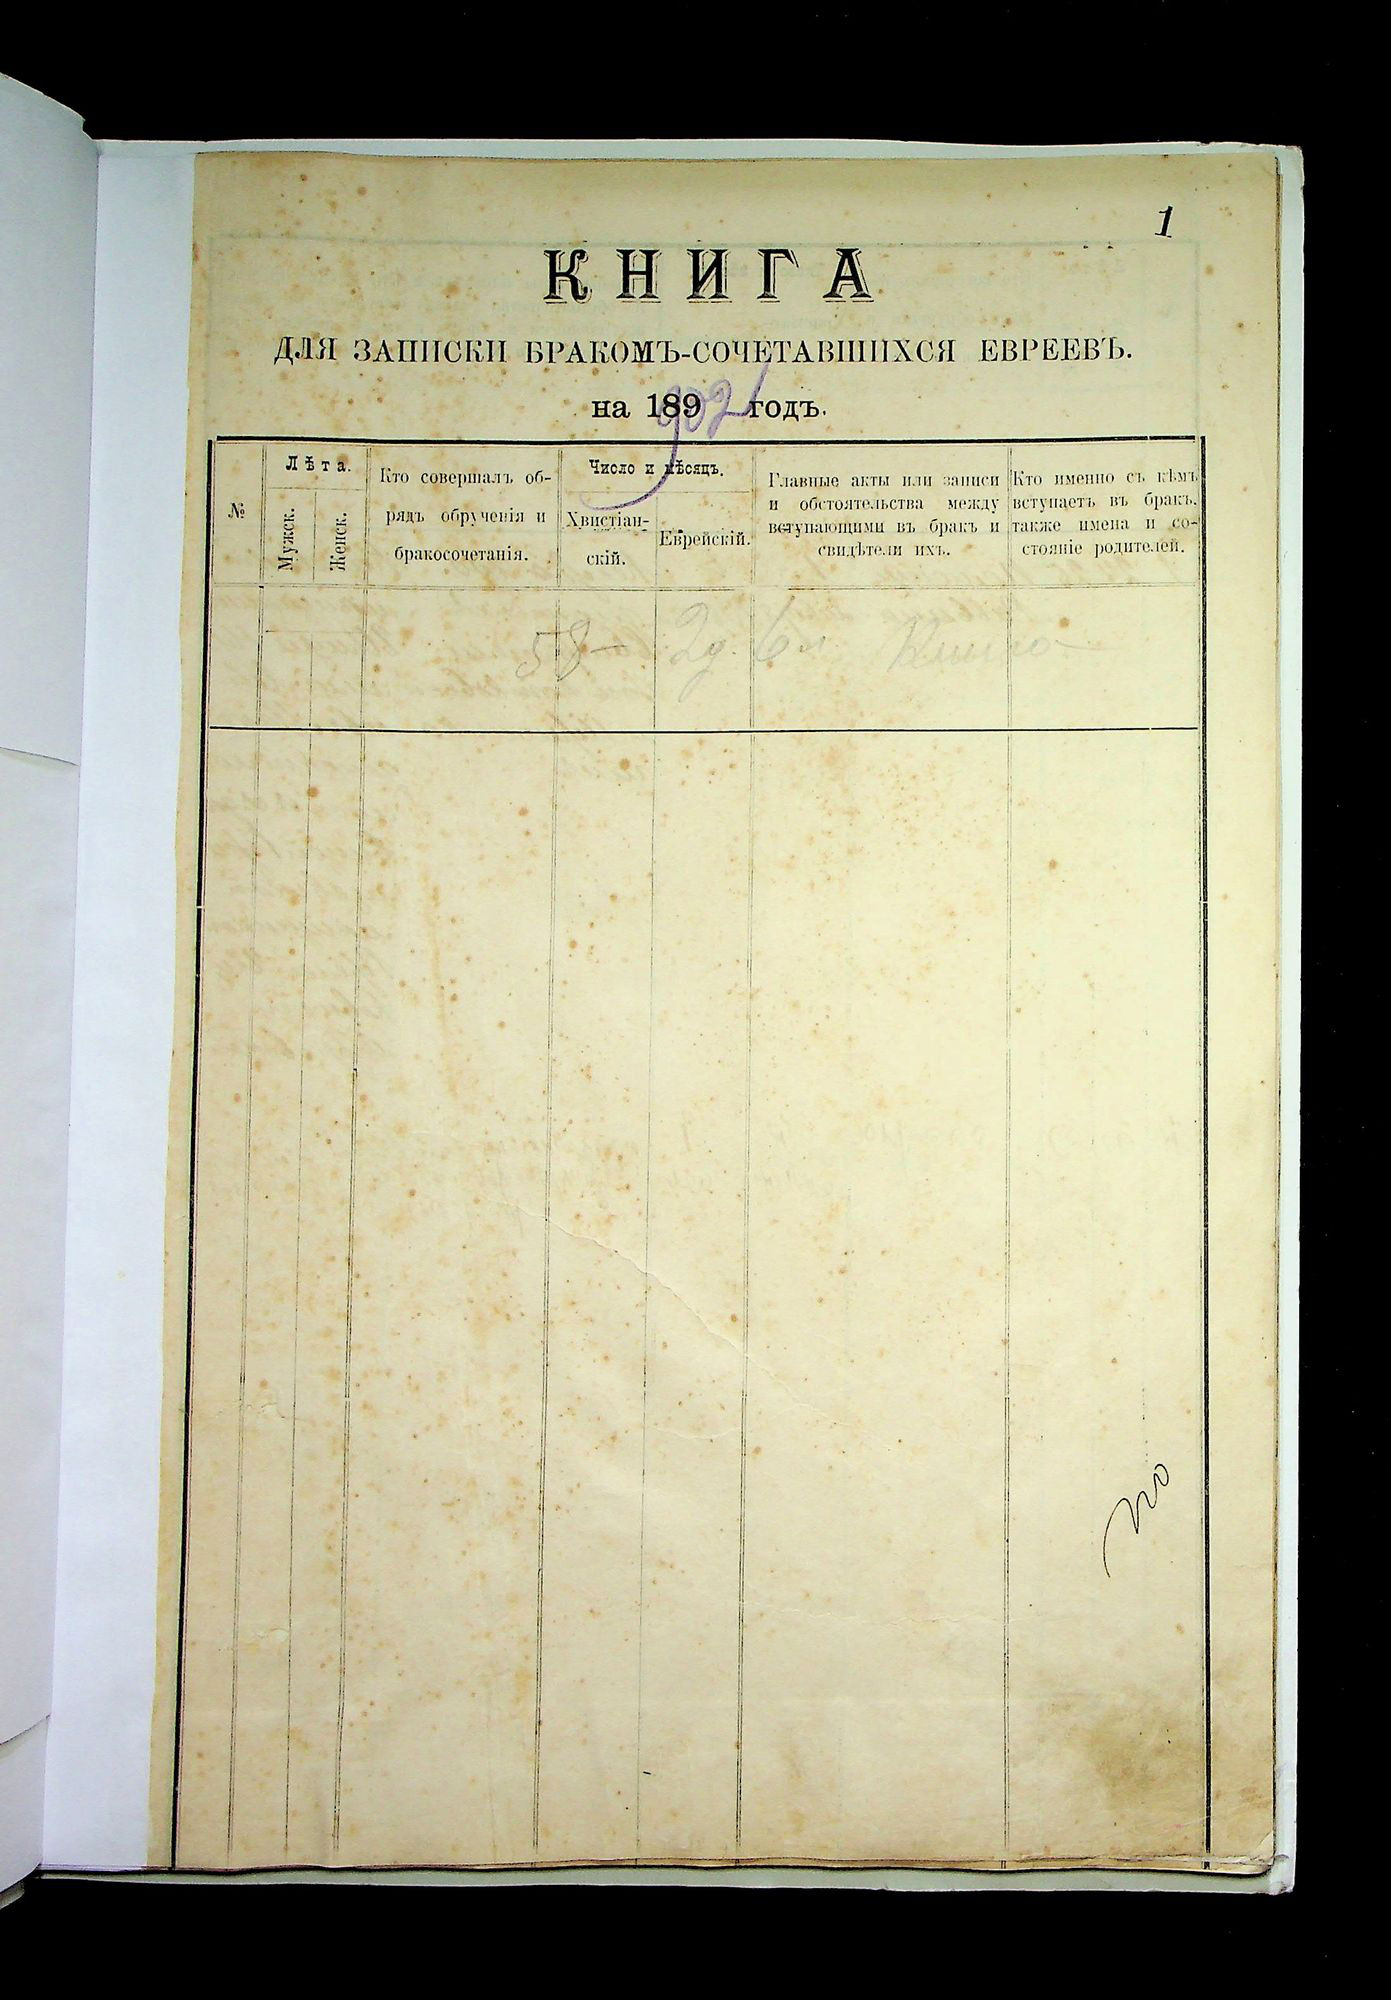 1
КНИГА
ДЛЯ ЗАПИСКИ БРАКОМЪ-СОЧЕТАВШИХСЯ ЕВРЕЕВЪ.
на 189 902 годъ.
№
Лѣта.
Мужск.
Женск.
Кто совершалъ об-
рядъ обрученія и
бракосочетанія.
Число и мѣсяцъ.
Хвистіан-
скій.
Еврейскій.
Главные акты или записи
и обстоятельства между
вступающими въ брак и
свидѣтели ихъ.
Кто именно съ кѣмъ
вступаетъ въ бракъ,
также имена и со-
стояніе родителей.
58 — 2д. 6л Книга